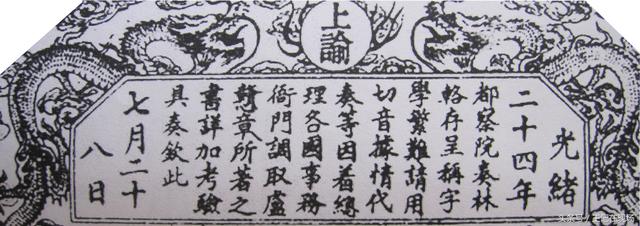 上諭
光緒
二十四年
都察院奏林
輅存呈稱字
學繁難請用
切音據情代
奏等因着總
理各國事務
衙門調取盧
戇章所著之
書詳加考驗
具奏欽此
七月二十
八日
头条号 / 在现场